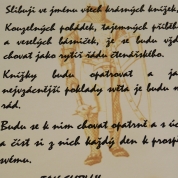 Slibuji ve jménu všech krásných knížek,
Kouzelných pohádek, tajemných příběhů
a veselých básniček, že se budu vždy
chovat jako rytíři řádu čtenářského.
Knížky budu opatrovat a ja
nejvzácnější poklady světa je budu m
rád.
Budu se k nim chovat opatrně a s úc
a číst si z nich každý den k prosp
svému.